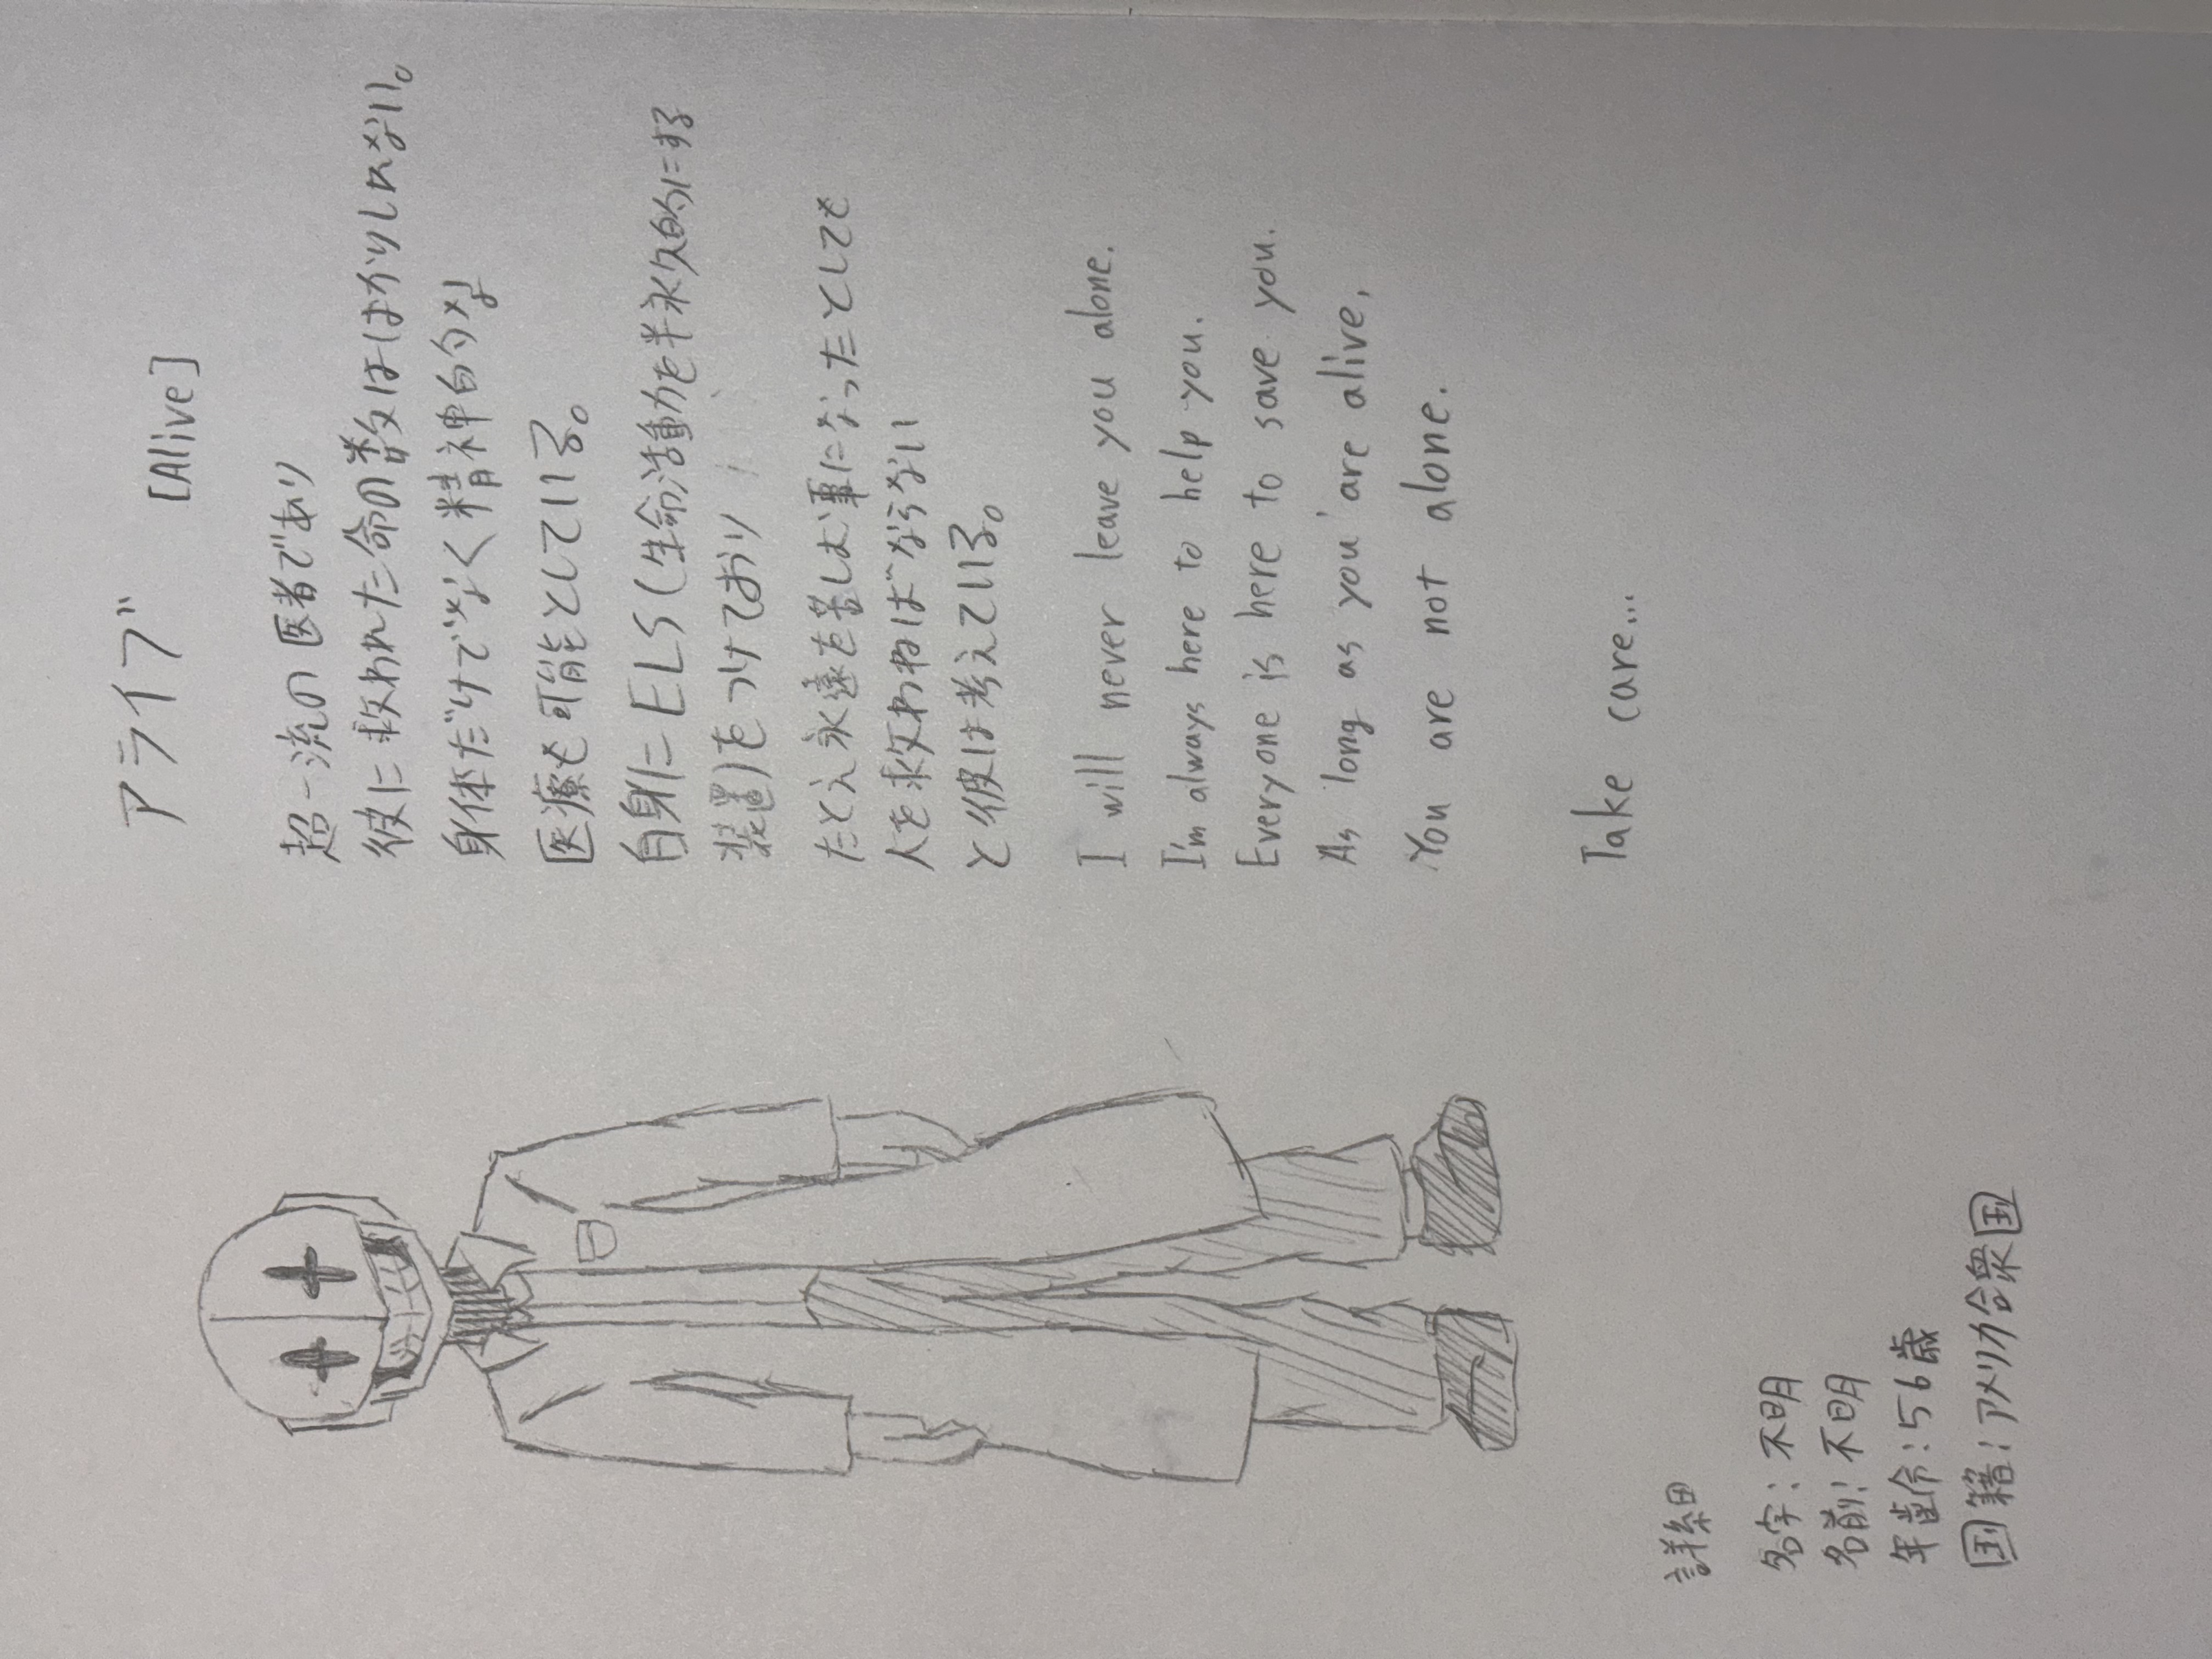 アライブ
[Alive]
超一流の医者であり
彼に救われた命の数ははかりしれない。
身体だけでなく精神的な
医療も可能としている。
自身にELS(生命活動を半永久的にする
装置)をつけており
たとえ永遠を苦しむ事になったとしても
人を救わねばならない
と彼は考えている。
I will never leave you alone.
I'm always here to help you.
Everyone is here to save you.
As long as you'are alive,
You are not alone.
Take care...
詳細
名字:不明
名前:不明
年齢:56歳
国籍:アメリカ合衆国